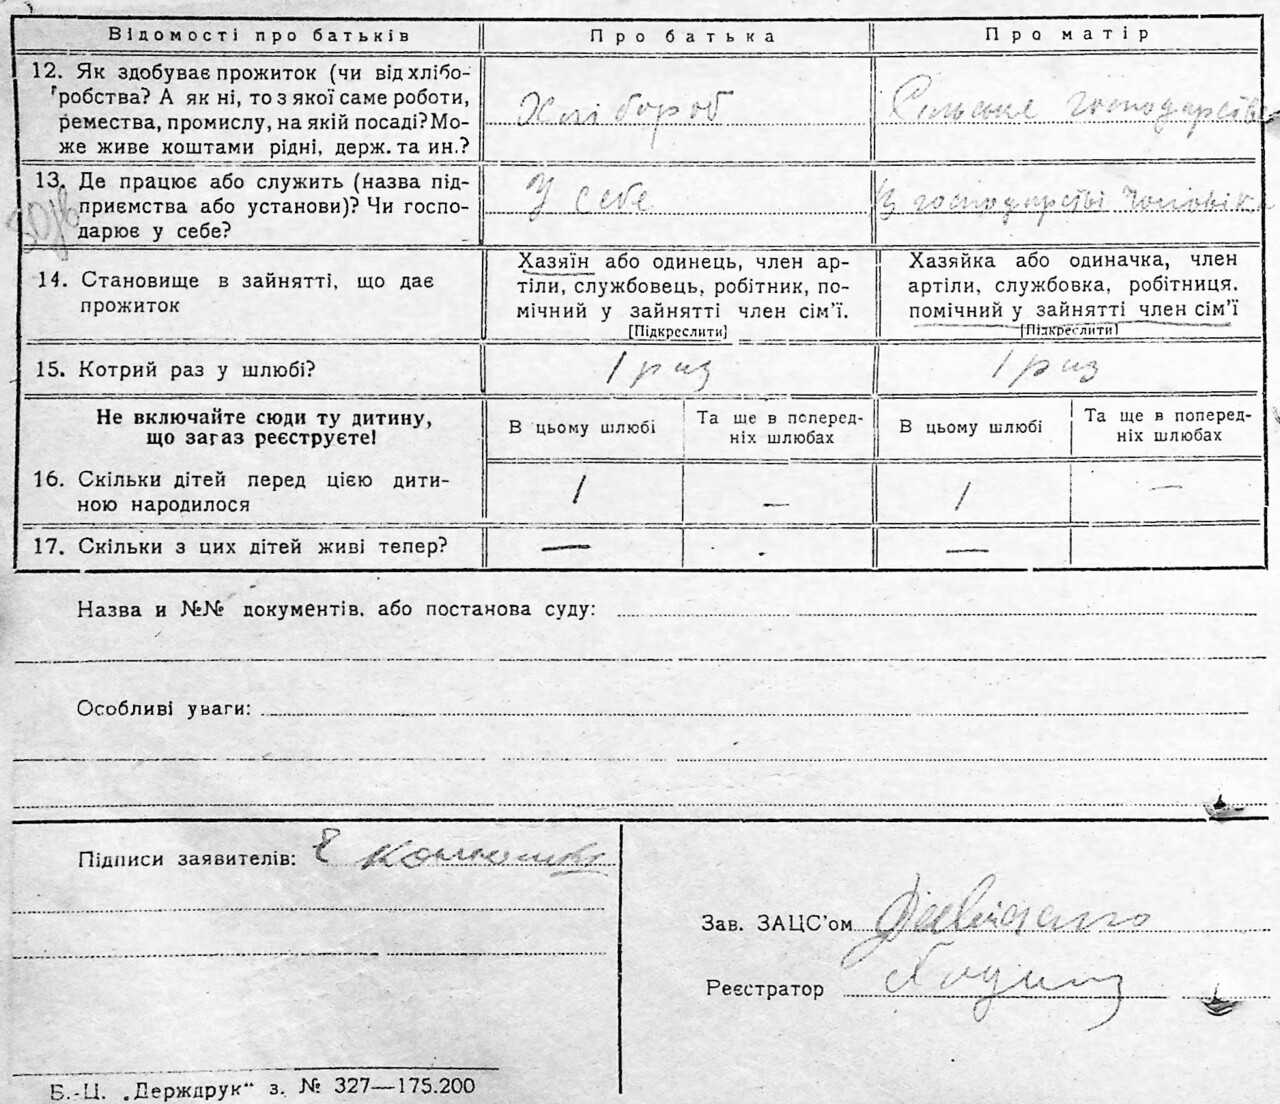 Відомості про батьків Про батька Про матір
12. Як здобуває прожиток (чи від хлібо-
робства? А як ні, то з якої саме роботи,
ремества, промислу, на якій посаді? Мо-
же живе коштами рідні, держ. та ин.?
Хлібороб
Сільське господарство
13. Де працює або служить (назва під-
приємства або установи)? Чи госпо-
дарює у себе?
У себе
В господарстві чоловіка
14. Становище в зайнятті, що дає
прожиток
Хазяїн або одинець, член ар-
тіли, службовець, робітник, по-
мічний у зайнятті член сім'ї.
[Підкреслити]
Хазяйка або одиначка, член
артіли, службовка, робітниця.
помічний у зайнятті член сім'ї
[Підкреслити]
15. Котрий раз у шлюбі? 1 раз 1 раз
Не включайте сюди ту дитину,
що загаз реєструєте!
В цьому шлюбі
Та ще в поперед-
ніх шлюбах
В цьому шлюбі
Та ще в поперед-
ніх шлюбах
16. Скільки дітей перед цією дити-
ною народилося
1 — 1 —
17. Скільки з цих дітей живі тепер? — . —
Назва и №№ документів, або постанова суду:
Особливі уваги:
Підписи заявителів:
Зав. ЗАЦС'ом
Реєстратор
Б.-Ц. „Держдрук“ з. № 327—175.200